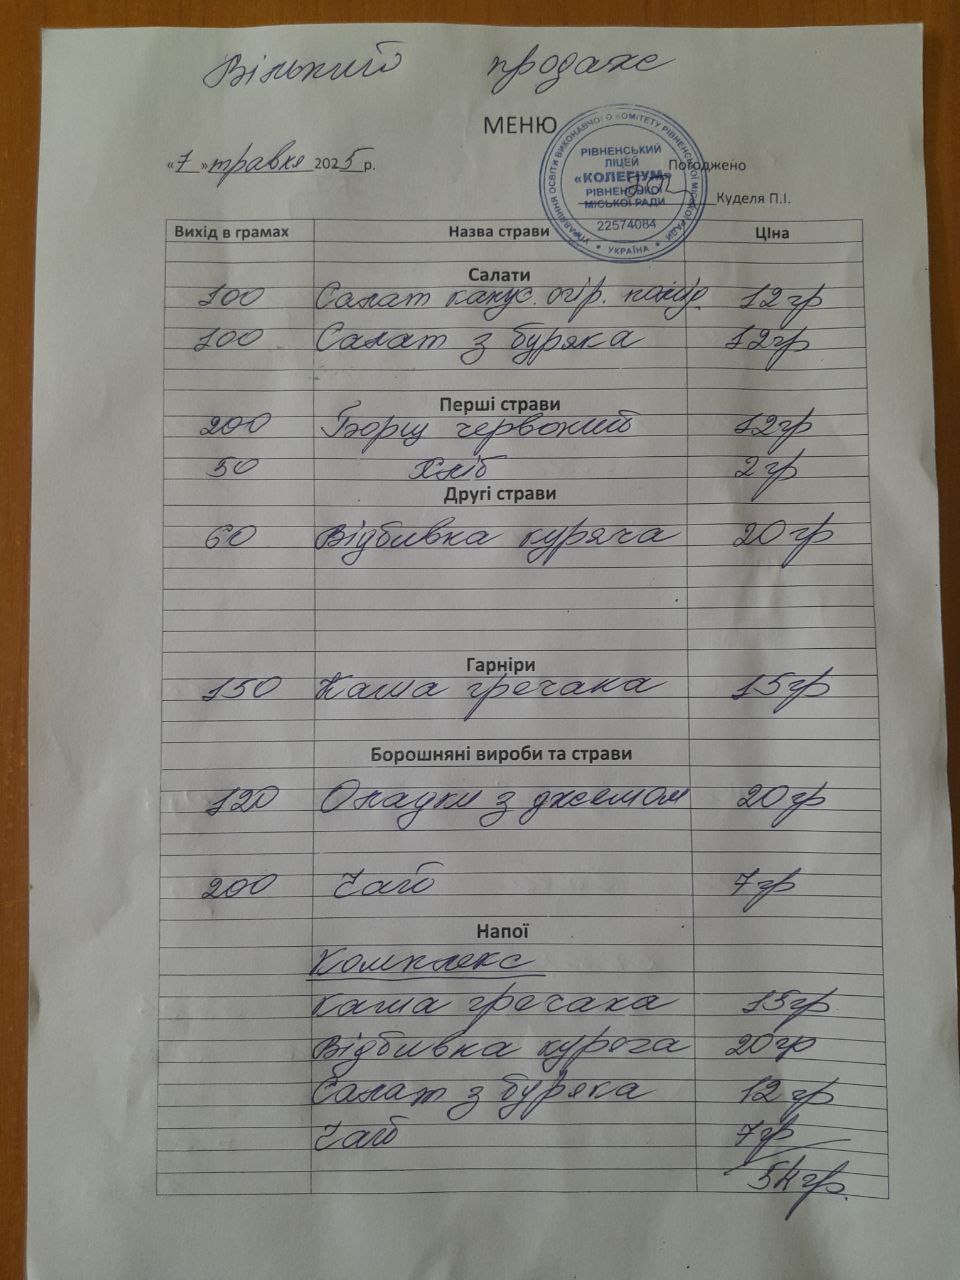 Вільний продаж
МЕНЮ
«7» травня 2025 р.
Погоджено
Куделя П.І.
УПРАВЛІННЯ ОСВІТИ ВИКОНАВЧОГО КОМІТЕТУ РІВНЕНСЬКОЇ МІСЬКОЇ РАДИ * УКРАЇНА *
РІВНЕНСЬКИЙ
ЛІЦЕЙ
«КОЛЕГІУМ»
РІВНЕНСЬКОЇ
МІСЬКОЇ РАДИ
22574084
Вихід в грамах Назва страви Ціна
Салати
100 Салат капус. огір. помід. 12 гр
100 Салат з буряка 12 гр
Перші страви
200 Борщ червоний 12 гр
50 Хліб 2 гр
Другі страви
60 Відбивка куряча 20 гр
Гарніри
150 Каша гречана 15 гр
Борошняні вироби та страви
120 Оладки з джемом 20 гр
200 Чай 7 гр
Напої
Комплекс
Каша гречана 15 гр
Відбивка куряча 20 гр
Салат з буряка 12 гр
Чай 7 гр
54 гр.